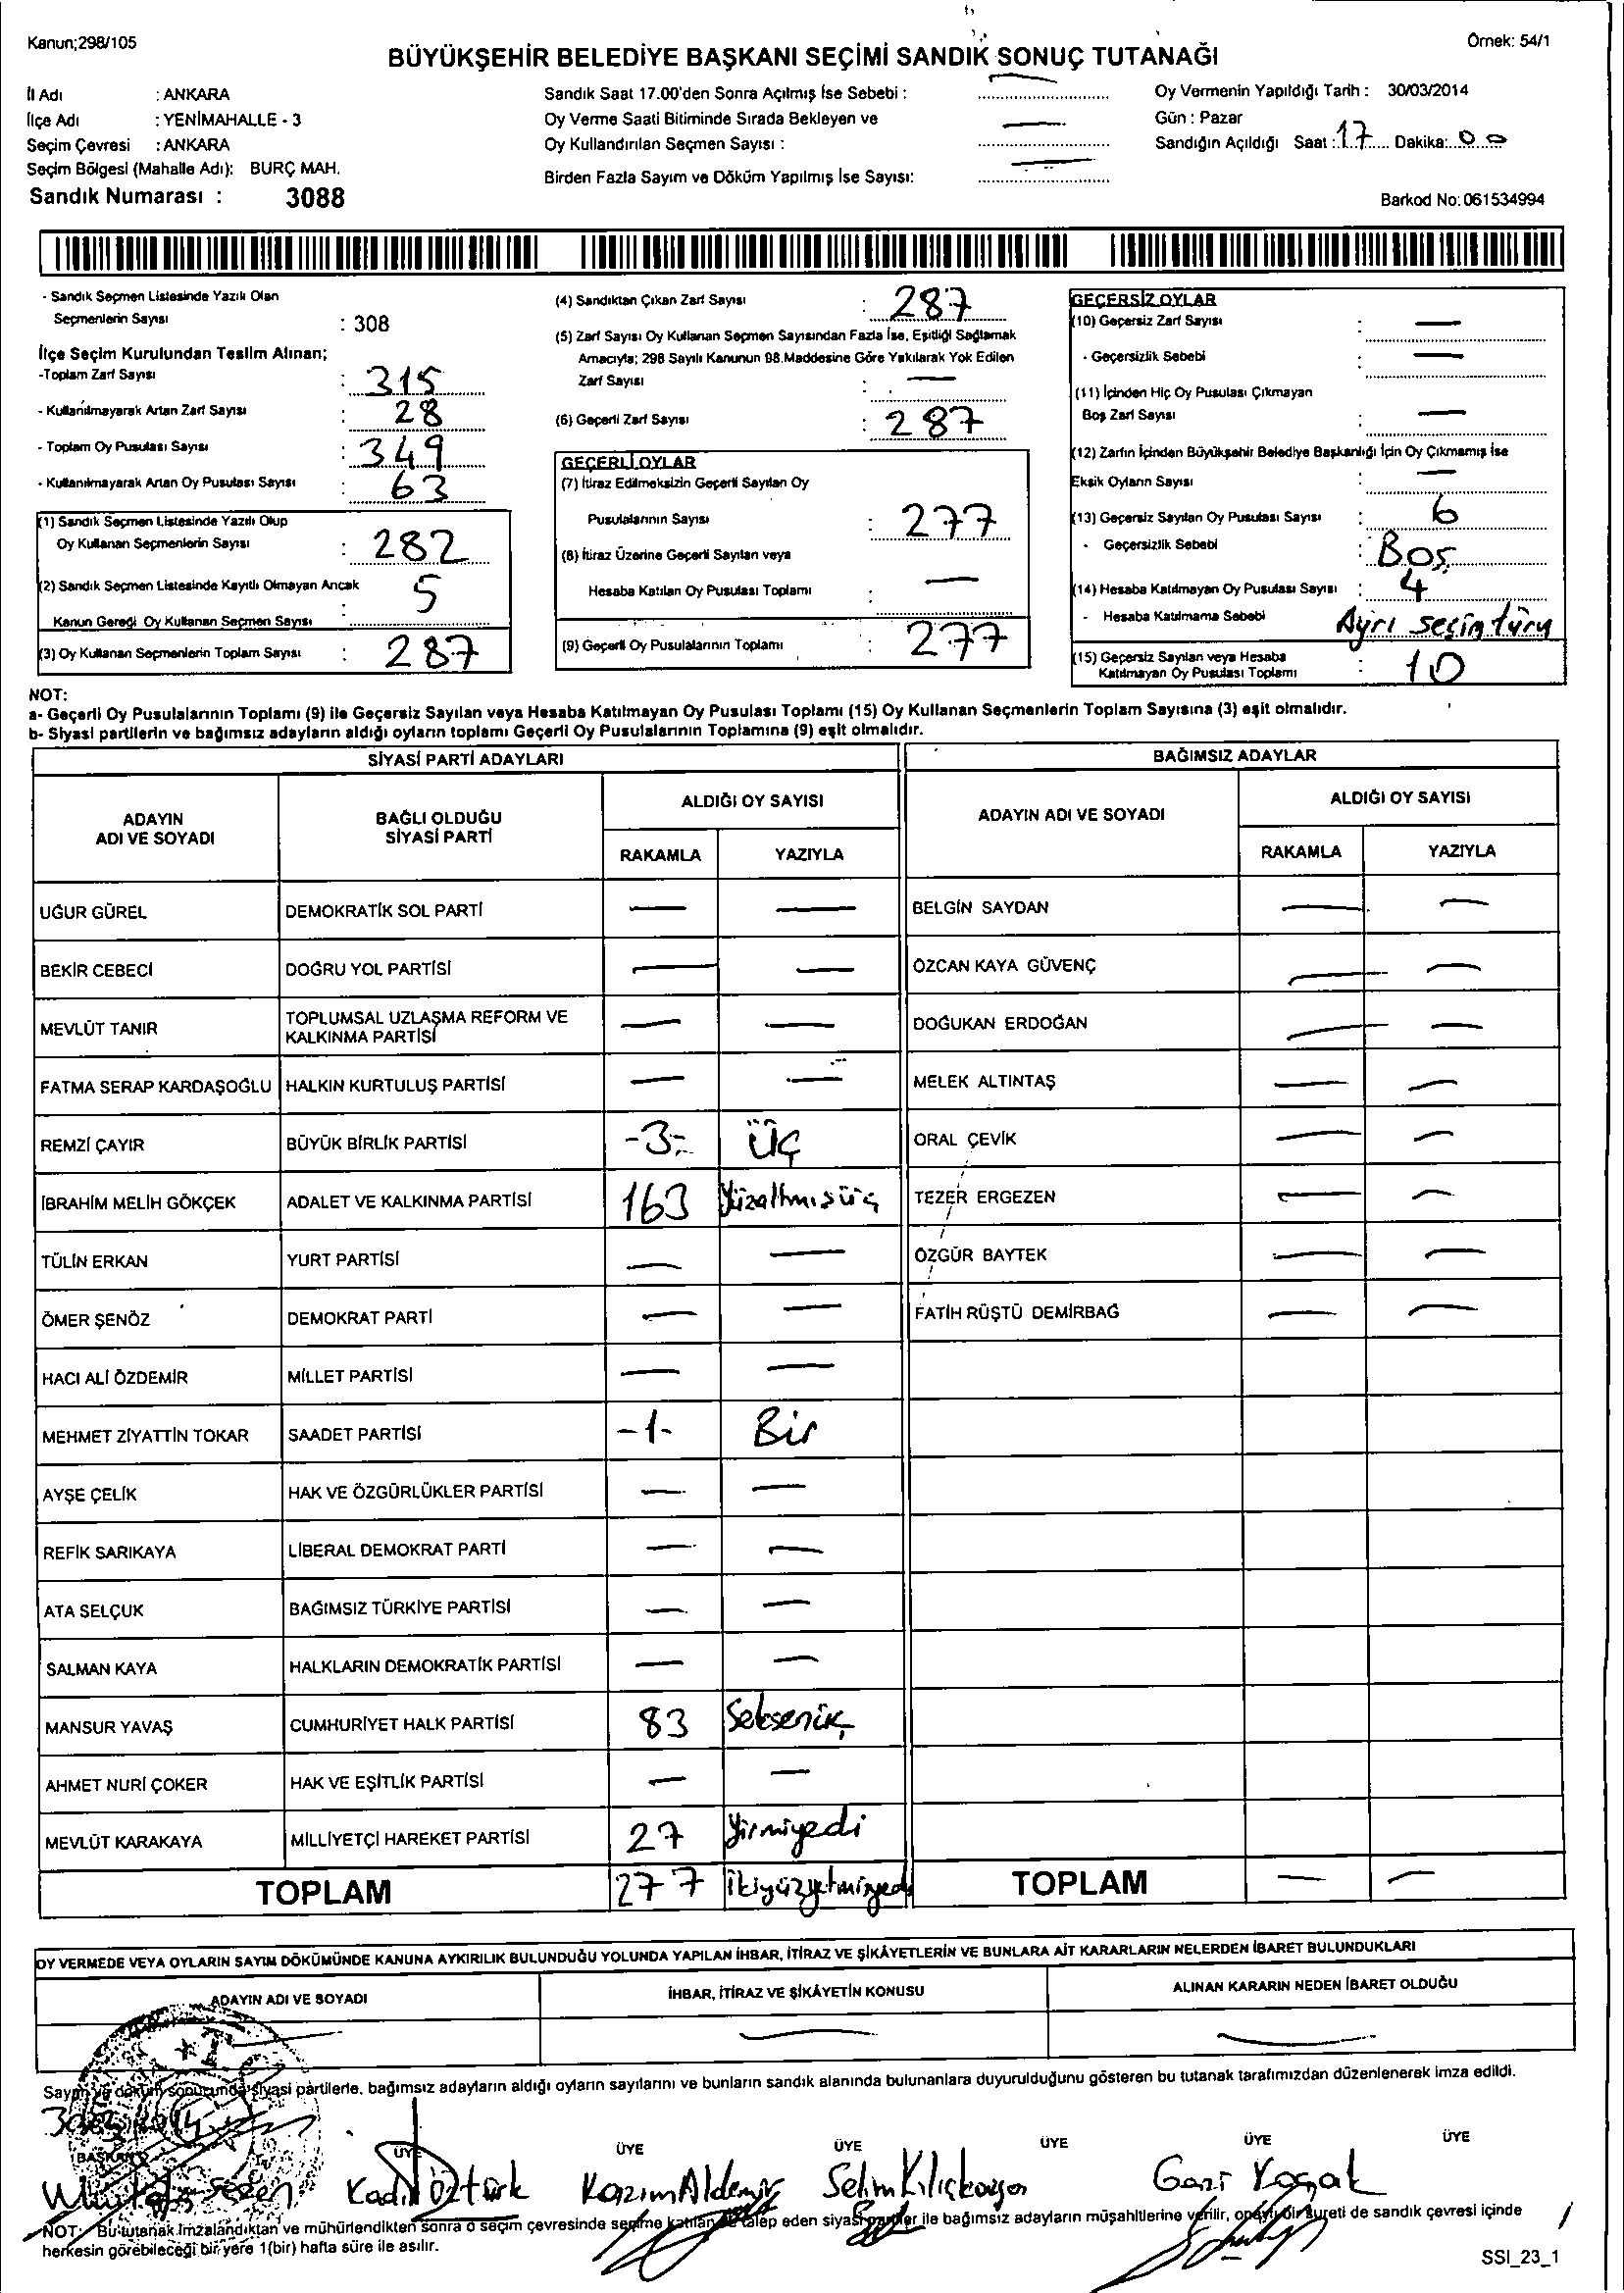 Kanun;298/105
Örnek: 54/1
BÜYÜKŞEHİR BELEDİYE BAŞKANI SEÇİMİ SANDIK SONUÇ TUTANAĞI
İl Adı : ANKARA
İlçe Adı : YENİMAHALLE - 3
Seçim Çevresi : ANKARA
Seçim Bölgesi (Mahalle Adı): BURÇ MAH.
Sandık Numarası : 3088
Sandık Saat 17.00'den Sonra Açılmış İse Sebebi : —
Oy Verme Saati Bitiminde Sırada Bekleyen ve
Oy Kullandırılan Seçmen Sayısı : —
Birden Fazla Sayım ve Döküm Yapılmış İse Sayısı: —
Oy Vermenin Yapıldığı Tarih : 30/03/2014
Gün : Pazar
Sandığın Açıldığı Saat : 17 Dakika: 00
Barkod No: 061534994
- Sandık Seçmen Listesinde Yazılı Olan
Seçmenlerin Sayısı : 308
İlçe Seçim Kurulundan Teslim Alınan;
-Toplam Zarf Sayısı : 315
- Kullanılmayarak Artan Zarf Sayısı : 28
- Toplam Oy Pusulası Sayısı : 349
- Kullanılmayarak Artan Oy Pusulası Sayısı : 63
(1) Sandık Seçmen Listesinde Yazılı Olup
Oy Kullanan Seçmenlerin Sayısı : 282
(2) Sandık Seçmen Listesinde Kayıtlı Olmayan Ancak
Kanun Gereği Oy Kullanan Seçmen Sayısı : 5
(3) Oy Kullanan Seçmenlerin Toplam Sayısı : 287
(4) Sandıktan Çıkan Zarf Sayısı : 287
(5) Zarf Sayısı Oy Kullanan Seçmen Sayısından Fazla İse, Eşitliği Sağlamak
Amacıyla; 298 Sayılı Kanunun 98.Maddesine Göre Yakılarak Yok Edilen
Zarf Sayısı : —
(6) Geçerli Zarf Sayısı : 287
GEÇERLİ OYLAR
(7) İtiraz Edilmeksizin Geçerli Sayılan Oy
Pusulalarının Sayısı : 277
(8) İtiraz Üzerine Geçerli Sayılan veya
Hesaba Katılan Oy Pusulası Toplamı : —
(9) Geçerli Oy Pusulalarının Toplamı : 277
GEÇERSİZ OYLAR
(10) Geçersiz Zarf Sayısı : —
- Geçersizlik Sebebi : —
(11) İçinden Hiç Oy Pusulası Çıkmayan
Boş Zarf Sayısı : —
(12) Zarfın İçinden Büyükşehir Belediye Başkanlığı İçin Oy Çıkmamış İse
Eksik Oyların Sayısı : —
(13) Geçersiz Sayılan Oy Pusulası Sayısı : 6
- Geçersizlik Sebebi : Boş
(14) Hesaba Katılmayan Oy Pusulası Sayısı : 4
- Hesaba Katılmama Sebebi Ayrı seçim türü
(15) Geçersiz Sayılan veya Hesaba
Katılmayan Oy Pusulası Toplamı : 10
NOT:
a- Geçerli Oy Pusulalarının Toplamı (9) ile Geçersiz Sayılan veya Hesaba Katılmayan Oy Pusulası Toplamı (15) Oy Kullanan Seçmenlerin Toplam Sayısına (3) eşit olmalıdır.
b- Siyasi partilerin ve bağımsız adayların aldığı oyların toplamı Geçerli Oy Pusulalarının Toplamına (9) eşit olmalıdır.
SİYASİ PARTİ ADAYLARI
ADAYIN ADI VE SOYADI BAĞLI OLDUĞU SİYASİ PARTİ ALDIĞI OY SAYISI
RAKAMLA YAZIYLA
UĞUR GÜREL DEMOKRATİK SOL PARTİ — —
BEKİR CEBECİ DOĞRU YOL PARTİSİ — —
MEVLÜT TANIR TOPLUMSAL UZLAŞMA REFORM VE KALKINMA PARTİSİ — —
FATMA SERAP KARDAŞOĞLU HALKIN KURTULUŞ PARTİSİ — —
REMZİ ÇAYIR BÜYÜK BİRLİK PARTİSİ -3- ÜÇ
İBRAHİM MELİH GÖKÇEK ADALET VE KALKINMA PARTİSİ 163 Yüzaltmışüç
TÜLİN ERKAN YURT PARTİSİ — —
ÖMER ŞENÖZ DEMOKRAT PARTİ — —
HACI ALİ ÖZDEMİR MİLLET PARTİSİ — —
MEHMET ZİYATTİN TOKAR SAADET PARTİSİ -1- Bir
AYŞE ÇELİK HAK VE ÖZGÜRLÜKLER PARTİSİ — —
REFİK SARIKAYA LİBERAL DEMOKRAT PARTİ — —
ATA SELÇUK BAĞIMSIZ TÜRKİYE PARTİSİ — —
SALMAN KAYA HALKLARIN DEMOKRATİK PARTİSİ — —
MANSUR YAVAŞ CUMHURİYET HALK PARTİSİ 83 Seksenüç
AHMET NURİ ÇOKER HAK VE EŞİTLİK PARTİSİ — —
MEVLÜT KARAKAYA MİLLİYETÇİ HAREKET PARTİSİ 27 Yirmiyedi
TOPLAM 277 İkiyüzyetmişyedi
BAĞIMSIZ ADAYLAR
ADAYIN ADI VE SOYADI ALDIĞI OY SAYISI
RAKAMLA YAZIYLA
BELGİN SAYDAN — —
ÖZCAN KAYA GÜVENÇ — —
DOĞUKAN ERDOĞAN — —
MELEK ALTINTAŞ — —
ORAL ÇEVİK — —
TEZER ERGEZEN — —
ÖZGÜR BAYTEK — —
FATİH RÜŞTÜ DEMİRBAĞ — —
TOPLAM — —
OY VERMEDE VEYA OYLARIN SAYIM DÖKÜMÜNDE KANUNA AYKIRILIK BULUNDUĞU YOLUNDA YAPILAN İHBAR, İTİRAZ VE ŞİKÂYETLERİN VE BUNLARA AİT KARARLARIN NELERDEN İBARET BULUNDUKLARI
ADAYIN ADI VE SOYADI İHBAR, İTİRAZ VE ŞİKÂYETİN KONUSU ALINAN KARARIN NEDEN İBARET OLDUĞU
— — —
Sayım ve döküm sonucunda siyasi partilerle, bağımsız adayların aldığı oyların sayılarını ve bunların sandık alanında bulunanlara duyurulduğunu gösteren bu tutanak tarafımızdan düzenlenerek imza edildi.
30.03.2014
BAŞKAN ÜYE ÜYE ÜYE ÜYE ÜYE ÜYE
Kadir Öztürk Kazım Aldemir Selim Gazi Koçak
NOT: Bu tutanak imzalandıktan ve mühürlendikten sonra o seçim çevresinde seçime katılan ve talep eden siyasi partiler ile bağımsız adayların müşahitlerine verilir, onaylı bir sureti de sandık çevresi içinde
herkesin görebileceği bir yere 1(bir) hafta süre ile asılır.
SSI_23_1